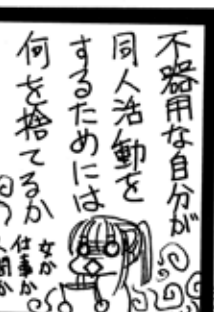 不器用な自分が
同人活動を
するためには
何を捨てるか
女か
仕事か
人間か